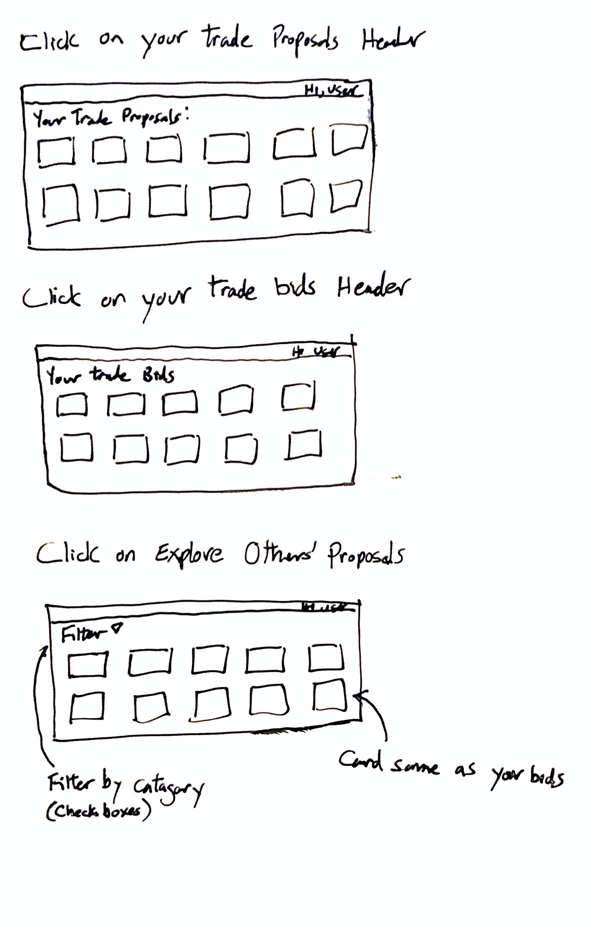 Click on your trade Proposals Header
Hi, user
Your Trade Proposals:
Click on your trade bids Header
Hi user
Your trade Bids
Click on Explore Others' Proposals
Hi, user
Filter
Card same as your bids
Filter by Catagary
(Check boxes)